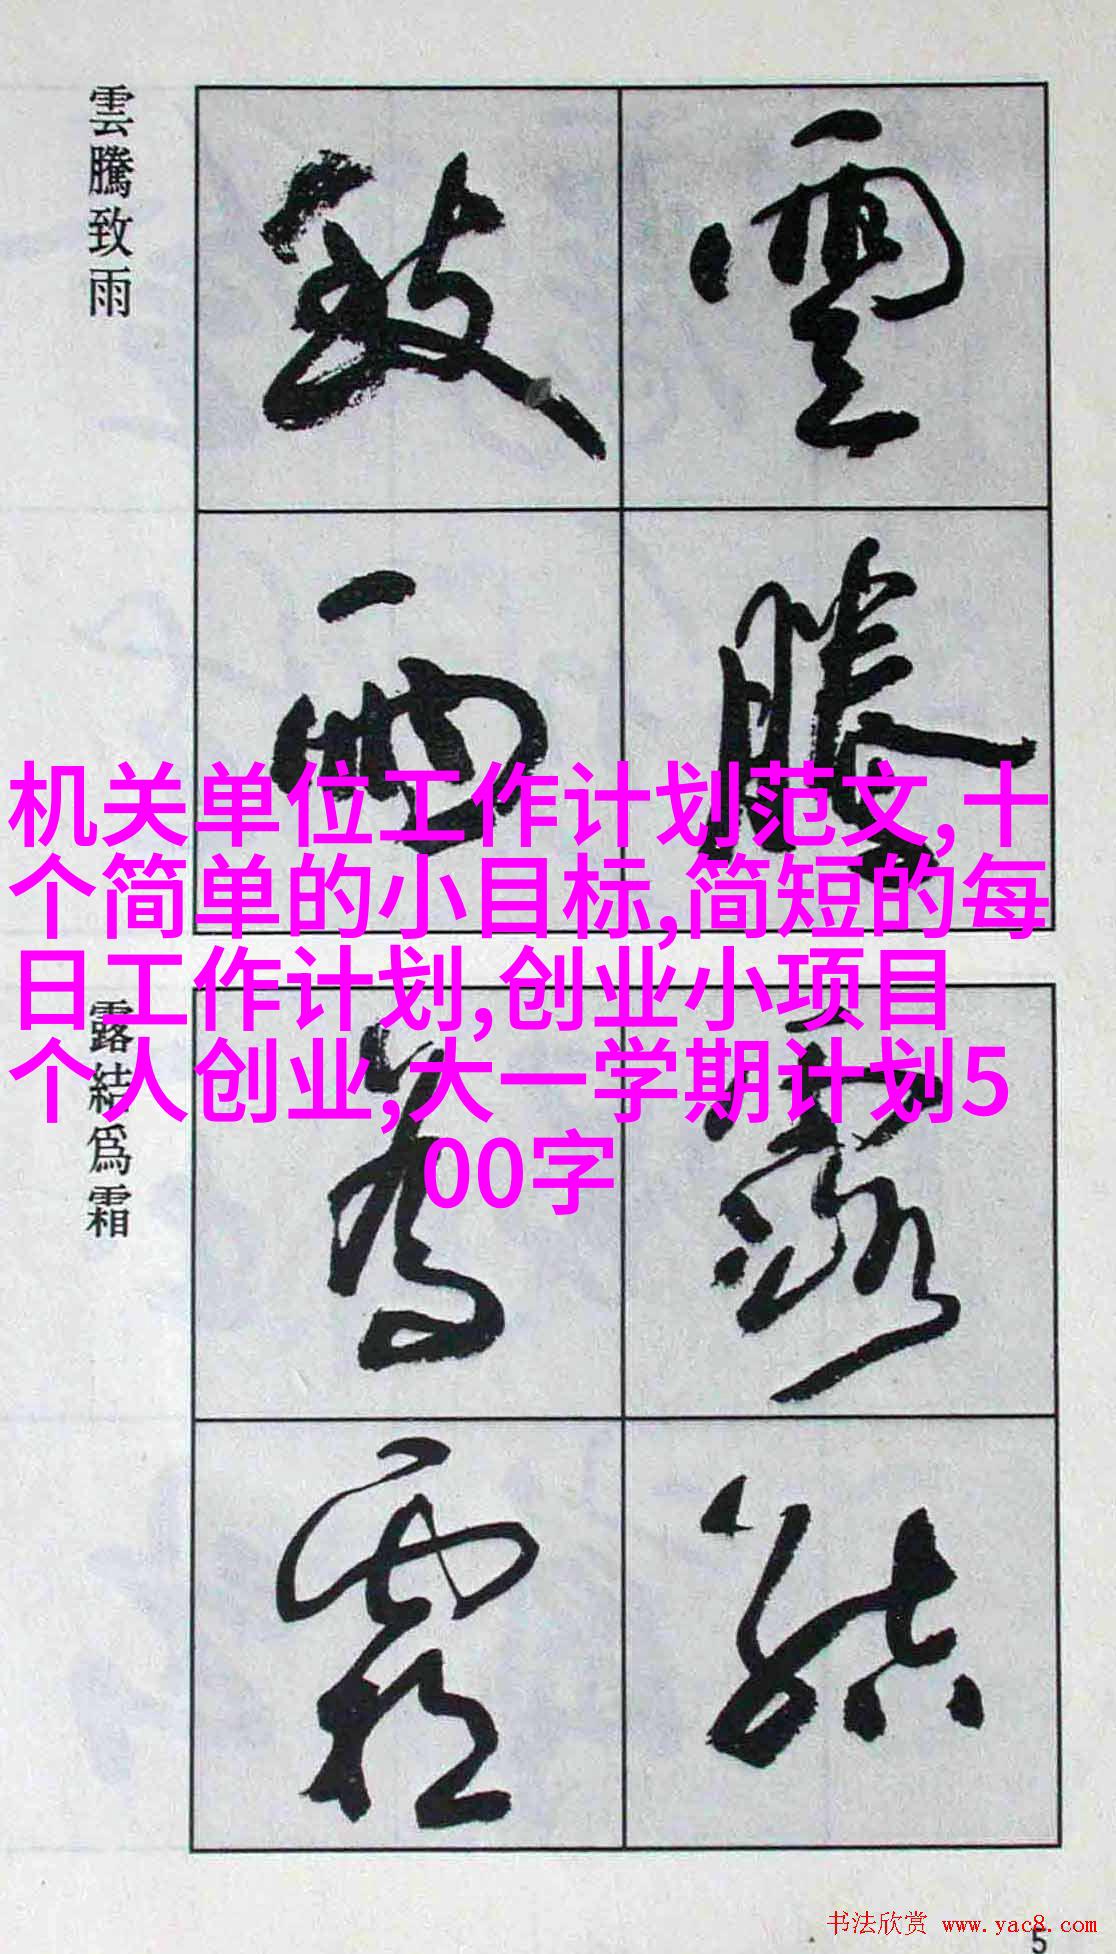 雲騰致雨
雲騰
致雨
機关单位工作计划范文,十
个简单的小目标,简短的每
日工作计划,创业小项目
个人创业,大一学期计划5
00字
露結為霜
露結
為霜
书法欣赏 www.yac8.com
5